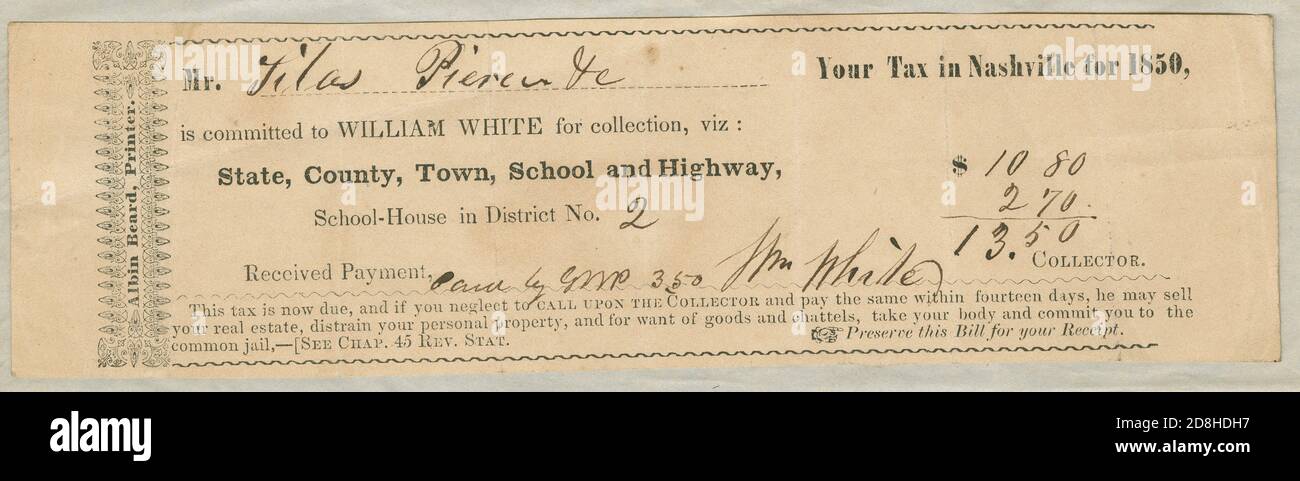 Albin Beard, Printer.
Mr. Silas Pierce &c Your Tax in Nashville for 1850,
is committed to WILLIAM WHITE for collection, viz :
State, County, Town, School and Highway, $ 10 80
School-House in District No. 2 2 70.
13.50
Received Payment, by 3 50 Wm White COLLECTOR.
This tax is now due, and if you neglect to CALL UPON THE COLLECTOR and pay the same within fourteen days, he may sell
your real estate, distrain your personal property, and for want of goods and chattels, take your body and commit you to the
common jail,—[SEE CHAP. 45 REV. STAT. ☞ Preserve this Bill for your Receipt.
a
alamy
Image ID: 2D8HDH7
www.alamy.com